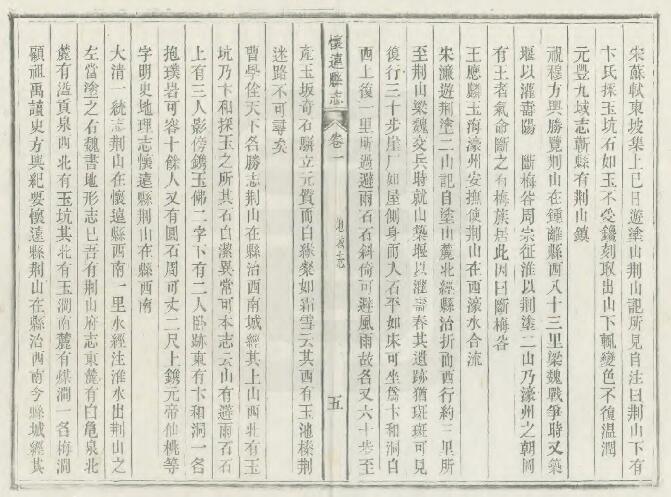 宋蘇軾東坡集上巳日遊塗山荆山記所見自注曰荆山下有
卞氏採玉坑石如玉不受鑱刻取出山下輒變色不復温潤
元豐九域志蘄縣有荆山鎮
祝穆方輿勝覽荆山在鍾離縣西八十三里梁魏戰爭時又築
堰以灌壽陽　斷梅谷周宗征淮以荆塗二山乃濠州之朝岡
有王者氣命斷之有梅族居此因曰斷梅谷
王應麟玉海濠州安撫使荆山在西濠水合流
宋濂遊荆塗二山記自塗山麓北經縣治折而西行約三里所
至荆山梁魏交兵時就山築堰以灌壽春其遺跡猶斑斑可見
復行三十步崖厂如屋側身而入石平如床可坐爲卞和洞自
西上復一里所過避雨石石斜倚可避風雨故名又六十步至
懷遠縣志
卷一
地域志
五
産玉坂奇石驕立元質而白緣粲如霜雪云其西有玉池榛荆
迷路不可尋矣
曹學佺天下名勝志荆山在縣治西南城經其上山西北有玉
坑乃卞和採玉之所其石白潔異常可本志云山有避雨石石
上有三人影傍鐫玉佛二字下有二人卧跡東有卞和洞一名
抱璞巖可容十餘人又有圓石周可丈二尺上鐫元帝仙桃等
字明史地理志懷遠縣荆山在縣西南
大清一統志荆山在懷遠縣西南一里水經注淮水出荆山之
左當塗之右魏書地形志已吾有荆山府志東麓有白龜泉北
麓有溢頁泉西北有玉坑其北有玉澗南麓有煤澗一名梅澗
顧祖禹讀史方輿紀要懷遠縣荆山在縣治西南今縣城經其